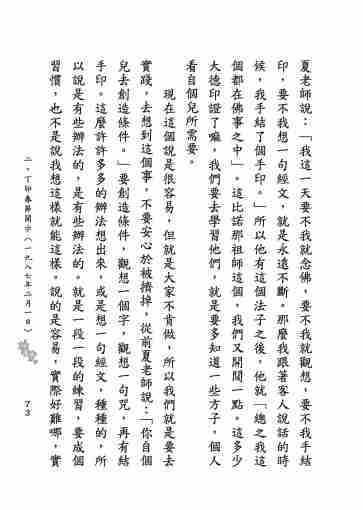 夏老師說：「我這一天要不我就念佛，要不我就觀想，要不我手結
印，要不我想一句經文，就是永遠不斷。那麼我跟著客人說話的時
候，我手結了個手印。」所以他有這個法子之後，他就「總之我這
個都在佛事之中」。這比諾那祖師這個，我們又開闊一點。這多少
大德印證了嘛，我們要去學習他們，就是要多知道一些方子，個人
看自個兒所需要。
現在這個說是很容易，但就是大家不肯做，所以我們就是要去
實踐，去想到這個事，不要安心於被擠掉，從前夏老師說：「你自個
兒去創造條件。」要創造條件，觀想一個字，觀想一句咒，再有結
手印。這麼許許多多的辦法想出來，或是想一句經文，種種的，所
以說是有些辦法的，是有些辦法的。就是一段一段的練習，要成個
習慣，也不是說我想這樣就能這樣。說的是容易，實際好難哪，實
二、丁卯春節開示（一九八七年二月一日）
73